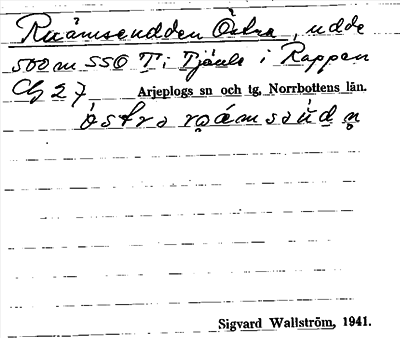 Ruåmsendden Östra, udde
500 m SSO T i Tjåule i Rappen
Cg 27 Arjeplogs sn och tg, Norrbottens län.
Sigvard Wallström, 1941.